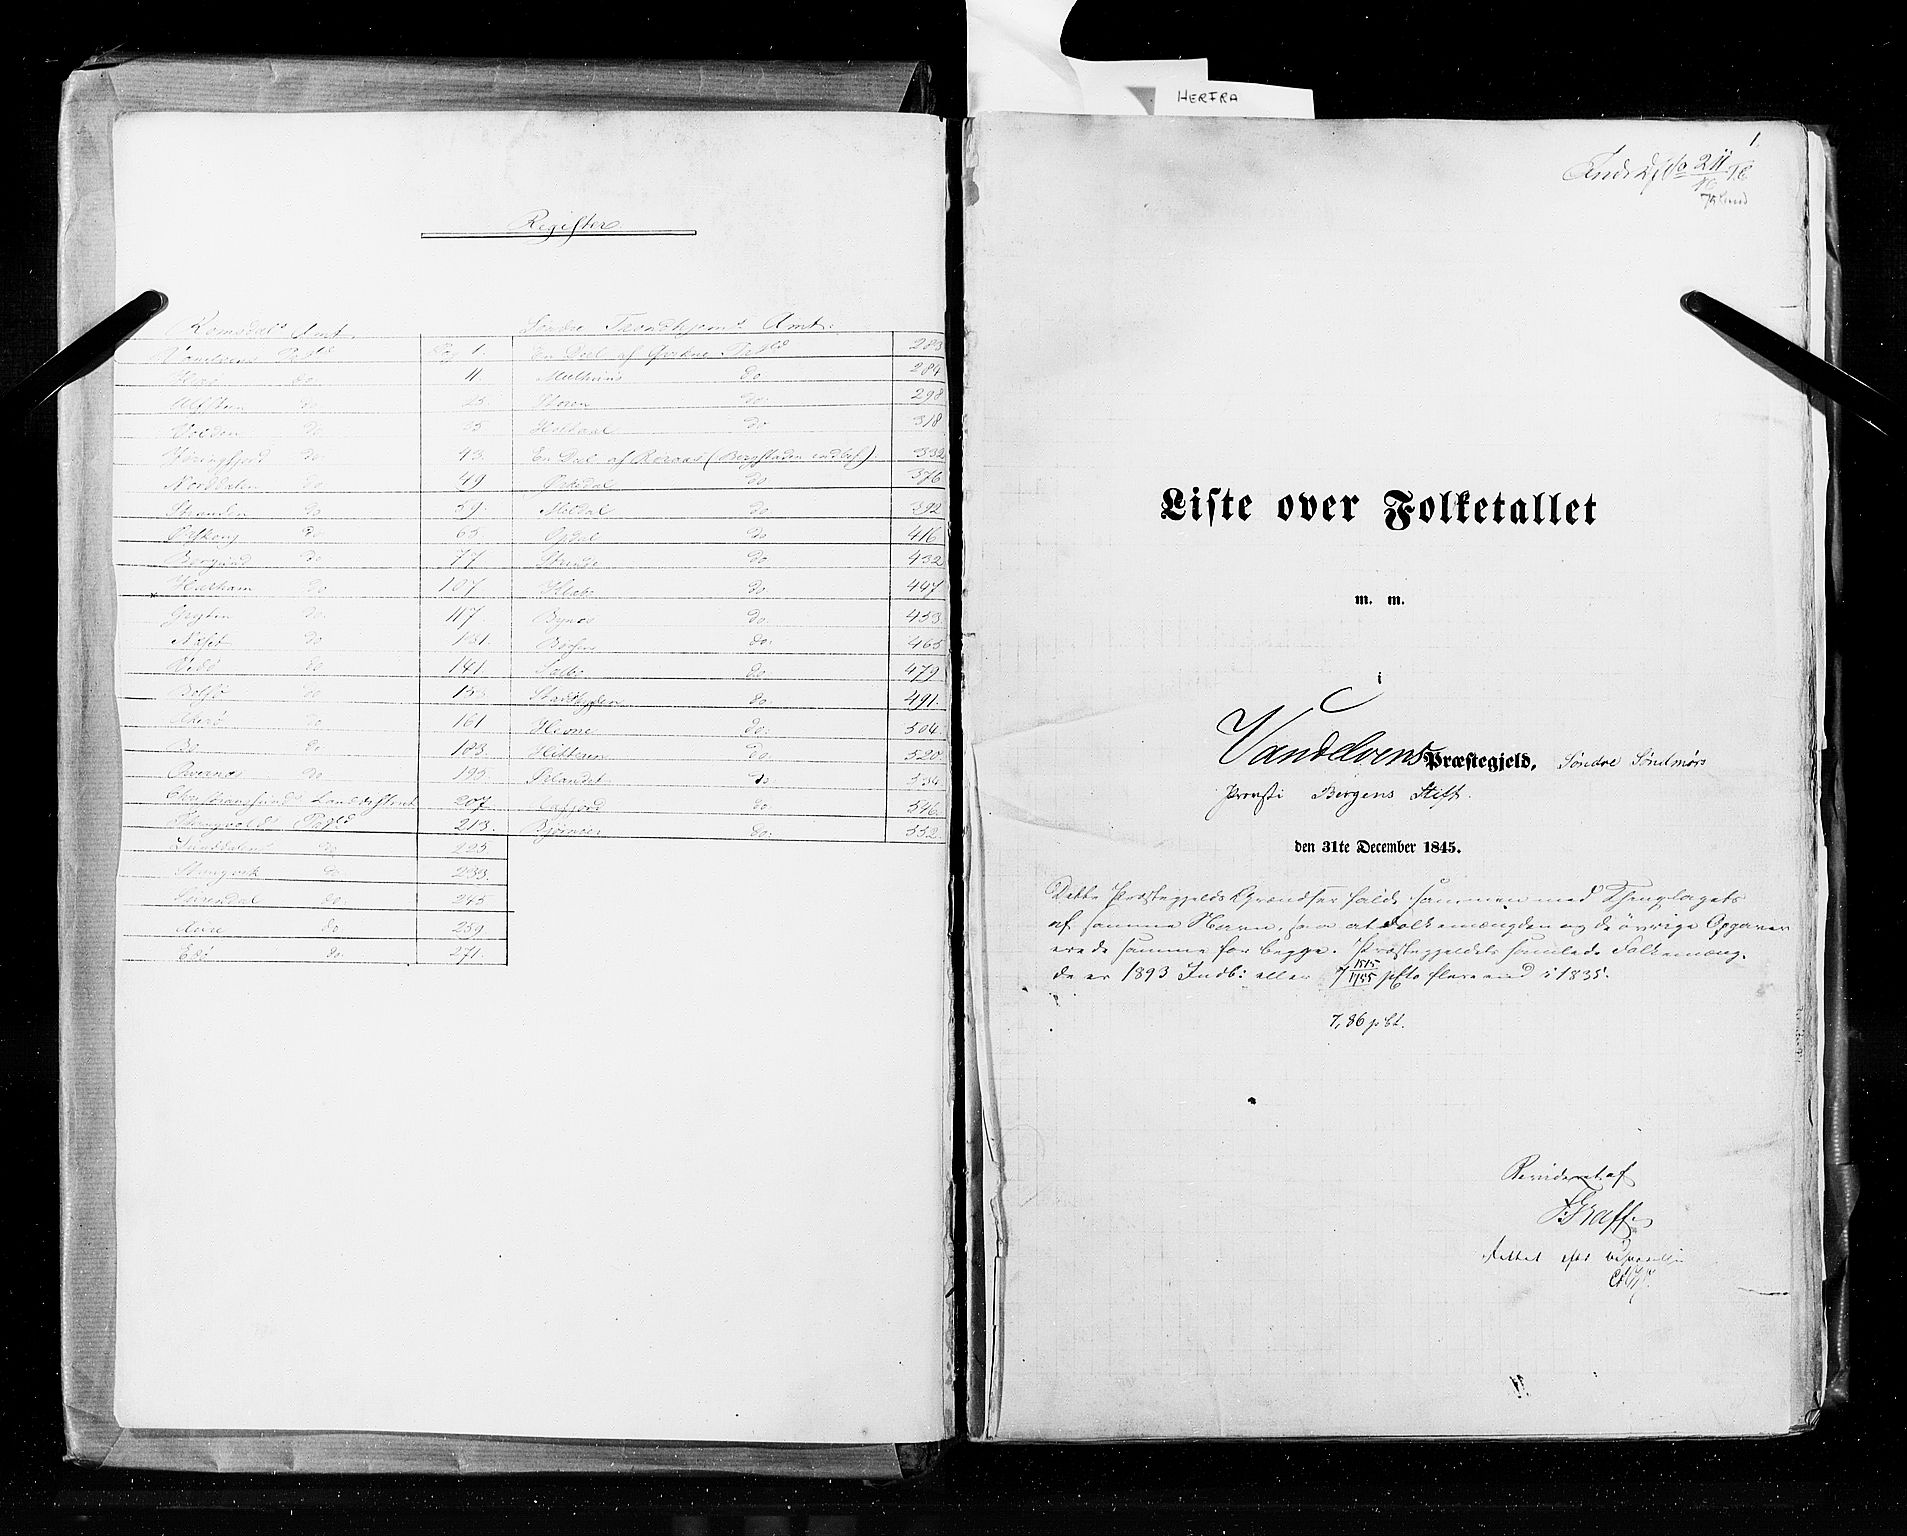 Register
Romsdals Amt.
Søndre Trondhjems Amt.
Vanelvens Pgld Pag. 1. En Deel af Ørkne Pgld 283
Herø do 11. Meelhuus do 284
Ulfsteen do 25. Støren do 298
Volden do 35 Holtaal do 318
Jøringfjord do 43. En Del af Røraas (Bergstaden indbef.) 332
Norddalen do 49 Ørkedal do 376
Stranden do 59. Meldal do 392
Ørskoug do 65 Opdal do 416
Borgund do 77 Strinde do 432
Harham do 107. Klæbo do 447
Grytten do 117. Bynes do 453
Næsset do 131. Børsen do. 465
Vedø do 141 Sælbo do 479
Bolsø do 153 Stadsbygden do. 491.
Akerø do 161 Hevne do. 504.
Bo do 183. Hitteren do. 520
Qværnes do 195. Ørlandet do 534
Christianssunds Landdistrict 207 Aafjord do. 546.
Tingvold Pgld 213. Bjørnør do. 552.
Sunddalens do 225
Stangvik do 233.
Surendal do. 245
Aure do 259
Edø do. 271.
HERFRA
1.
211
Liste over Folketallet
m. m.
i
Vandelvens Præstegjeld, Søndre Søndmørs
Provsti Bergens Stift.
den 31te December 1845.
Dette Præstegjelds Grændser falde sammen med Thinglagets
af samme Navn, saa at Folkemængden og de øvrige Opgaver
ere de samme for begge. Præstegjeldets samlede Folkemæng-
de er 1893 Indb: eller 7 1515/1755 pCto flere end i 1835.
7,86 pCt.
Revideret af
Graff.
Rettet efter